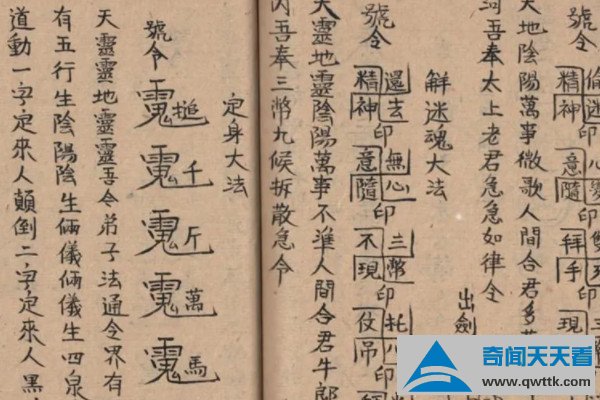 號令
精神印意隨印拜手印現
天地陰陽萬事微歌人間合君多
河吾奉太上老君急急如律令
出劍
解迷魂大法
號令
還去精神印無心意隨印三幣不現印托仗吊
天靈地靈陰陽萬事不準人間合君牛郎
内吾奉三幣九候拆散急令
定身大法
號令
槌千斤萬馬
天靈靈地靈靈吾令弟子法通令界有
有五行生陰陽陰生倆儀倆儀生四泉
道動一字定來人顛倒二字定來人黑
奇闻天天看
www.qwttk.com